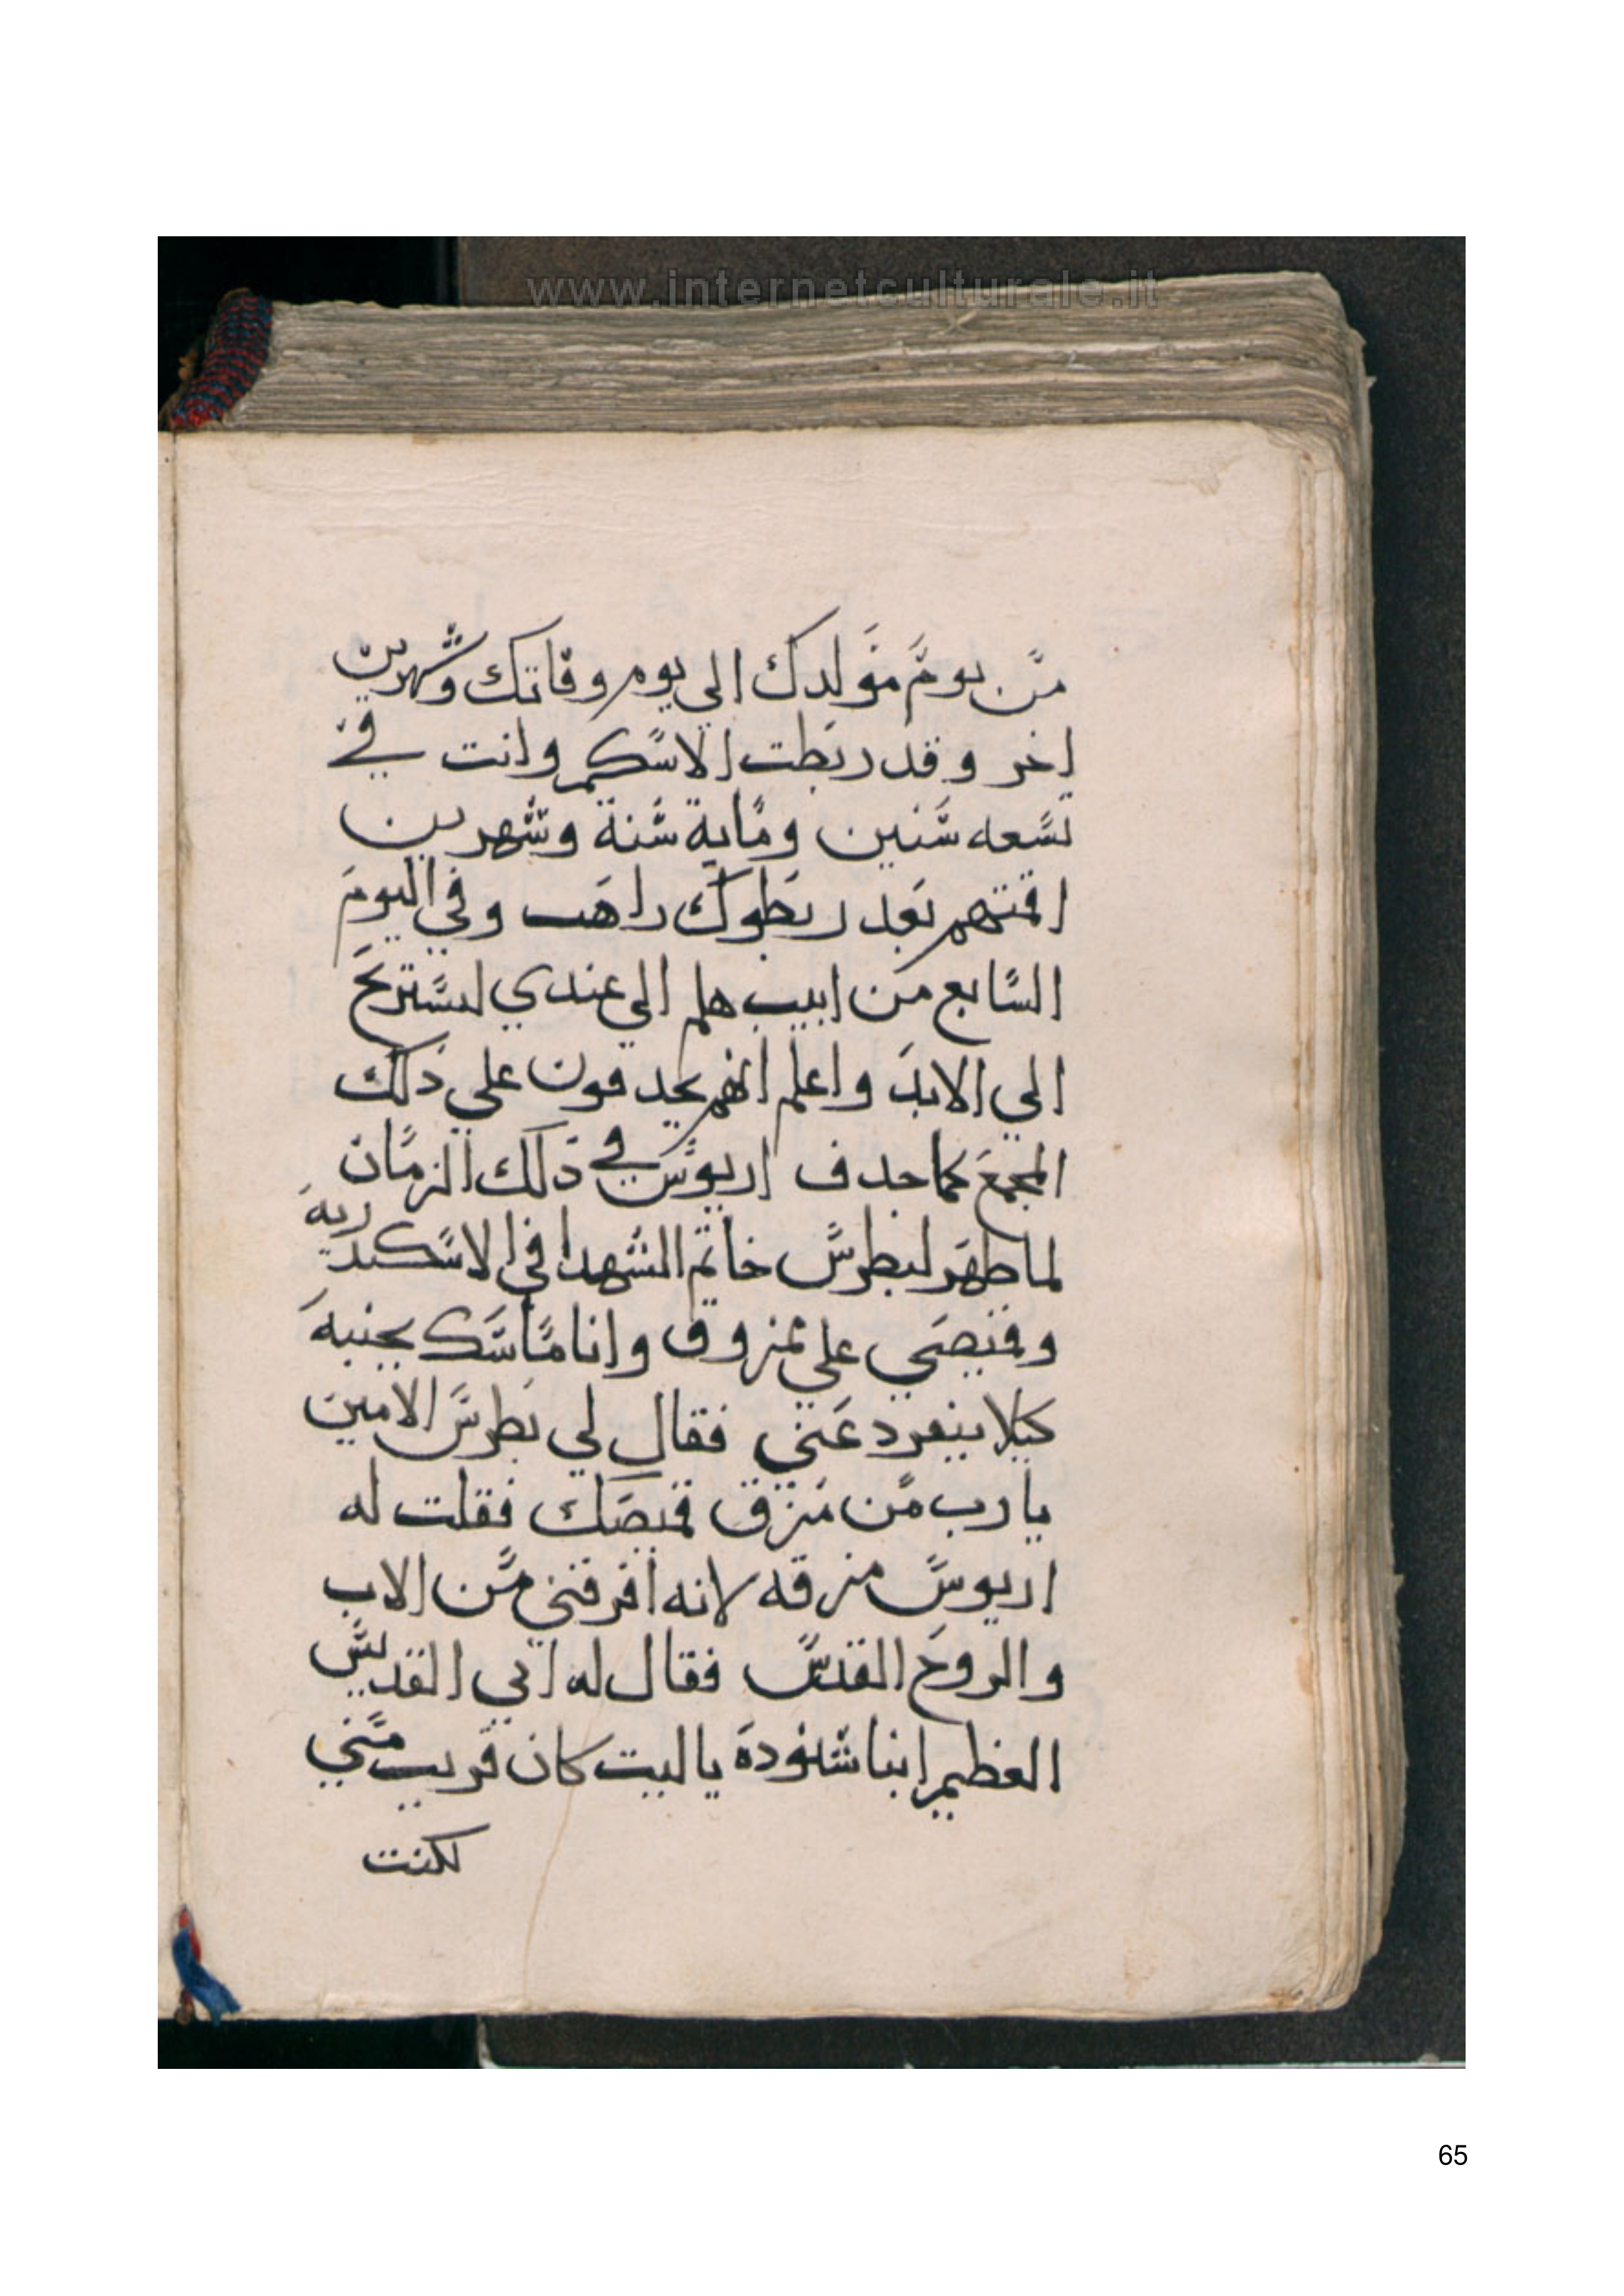 www.internetculturale.it
من يوم مولدك الي يوم وفاتك وشهرين
اخر وقد ربطت الاسكيم وانت في
تسعه سنين وماية سنة وشهرين
اقمتهم بعد ربطوك راهب وفي اليوم
السابع من ابيب هلم الي عندي لستريح
الي الابد واعلم انهم يجدفون علي ذلك
المجمع كما جدف اريوس في ذلك الزمان
لما ظهر لبطرس خاتم الشهدا في الاسكندرية
وقميصي علي ممزوق وانا ماسك بجنبه
كيلا ينفرد عني فقال لي بطرس الامين
يارب من مزق قميصك فقلت له
اريوس مزقه لانه افرقني من الاب
والروح القدس فقال له ابي القديس
العظيم انبا شنودة ياليت كان قريب مني
لكنت
65